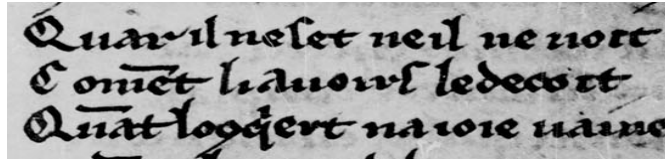 Quar il ne set ne il ne uoit
Com̄et li auoirs le decoit
Qūat lo qͥert na ioie uaine